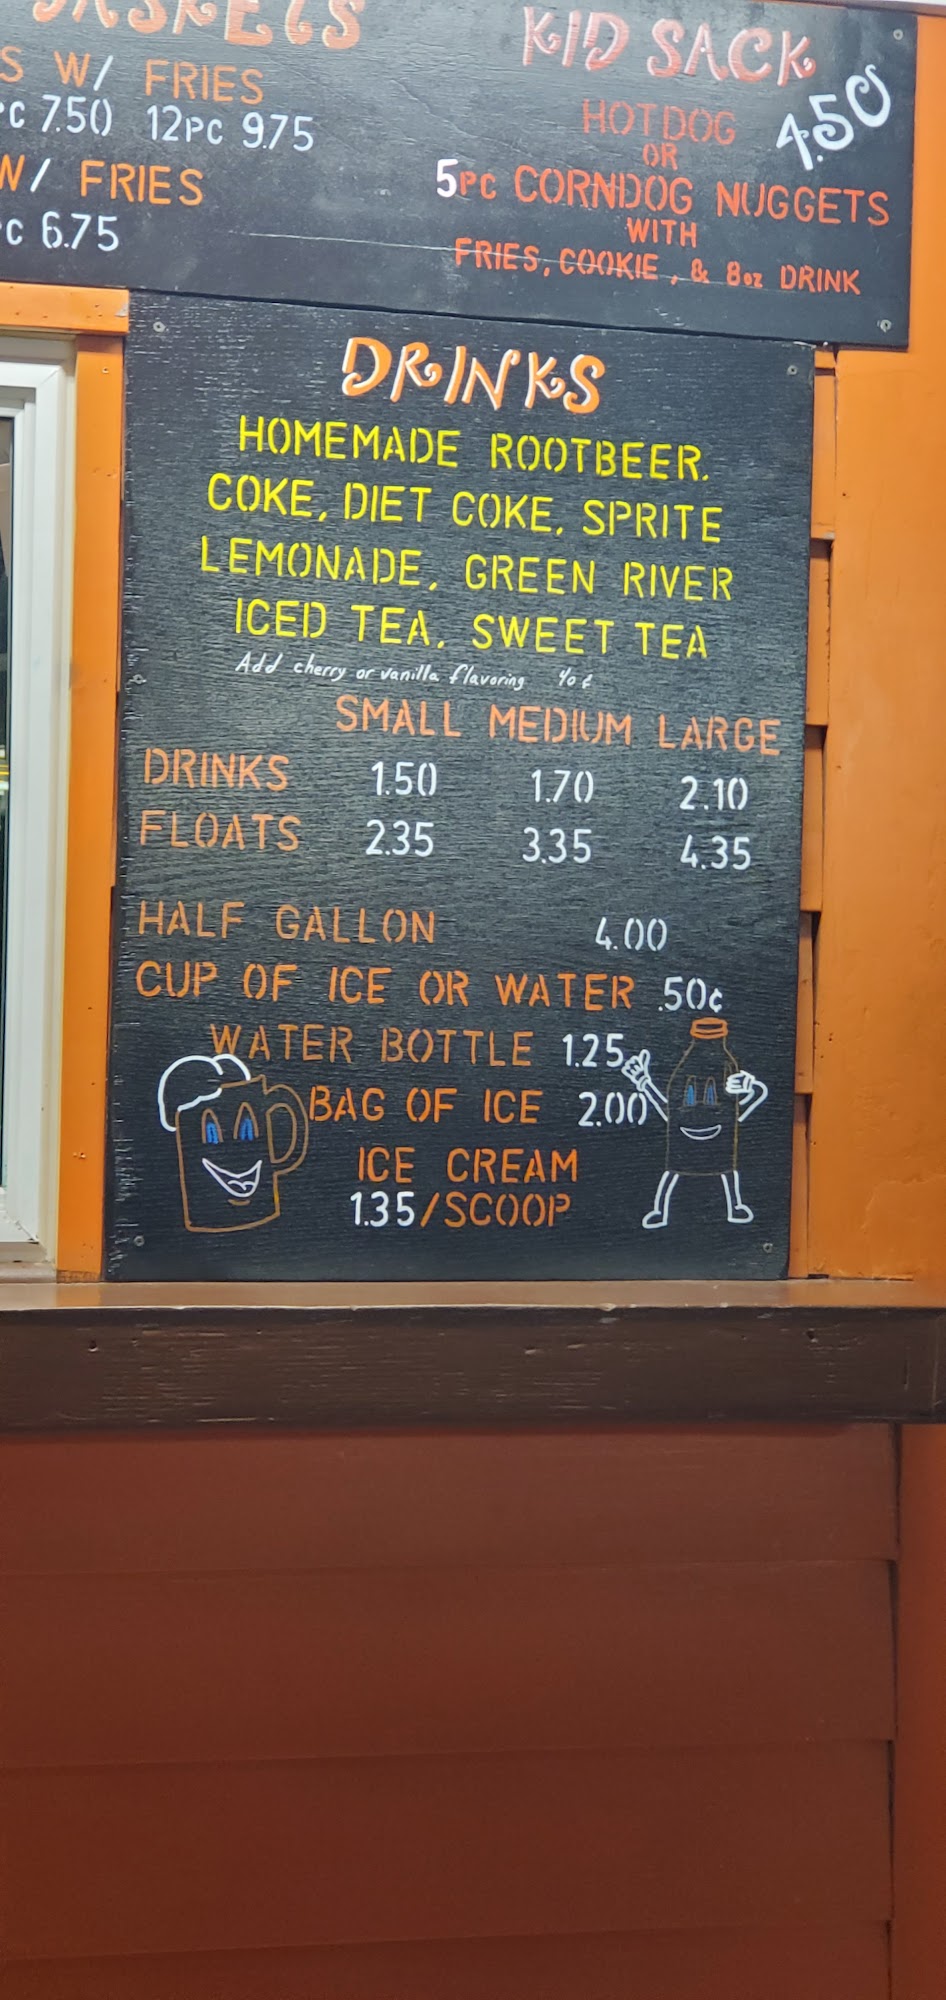 BASKETS
W/ FRIES
7.50 12PC 9.75
W/ FRIES
6.75
KID SACK
4.50
HOTDOG
OR
5PC CORNDOG NUGGETS
WITH
FRIES, COOKIE, & 8oz DRINK
DRINKS
HOMEMADE ROOTBEER,
COKE, DIET COKE, SPRITE
LEMONADE, GREEN RIVER
ICED TEA, SWEET TEA
Add cherry or vanilla flavoring 40¢
SMALL MEDIUM LARGE
DRINKS 1.50 1.70 2.10
FLOATS 2.35 3.35 4.35
HALF GALLON 4.00
CUP OF ICE OR WATER .50¢
WATER BOTTLE 1.25
BAG OF ICE 2.00
ICE CREAM
1.35/SCOOP